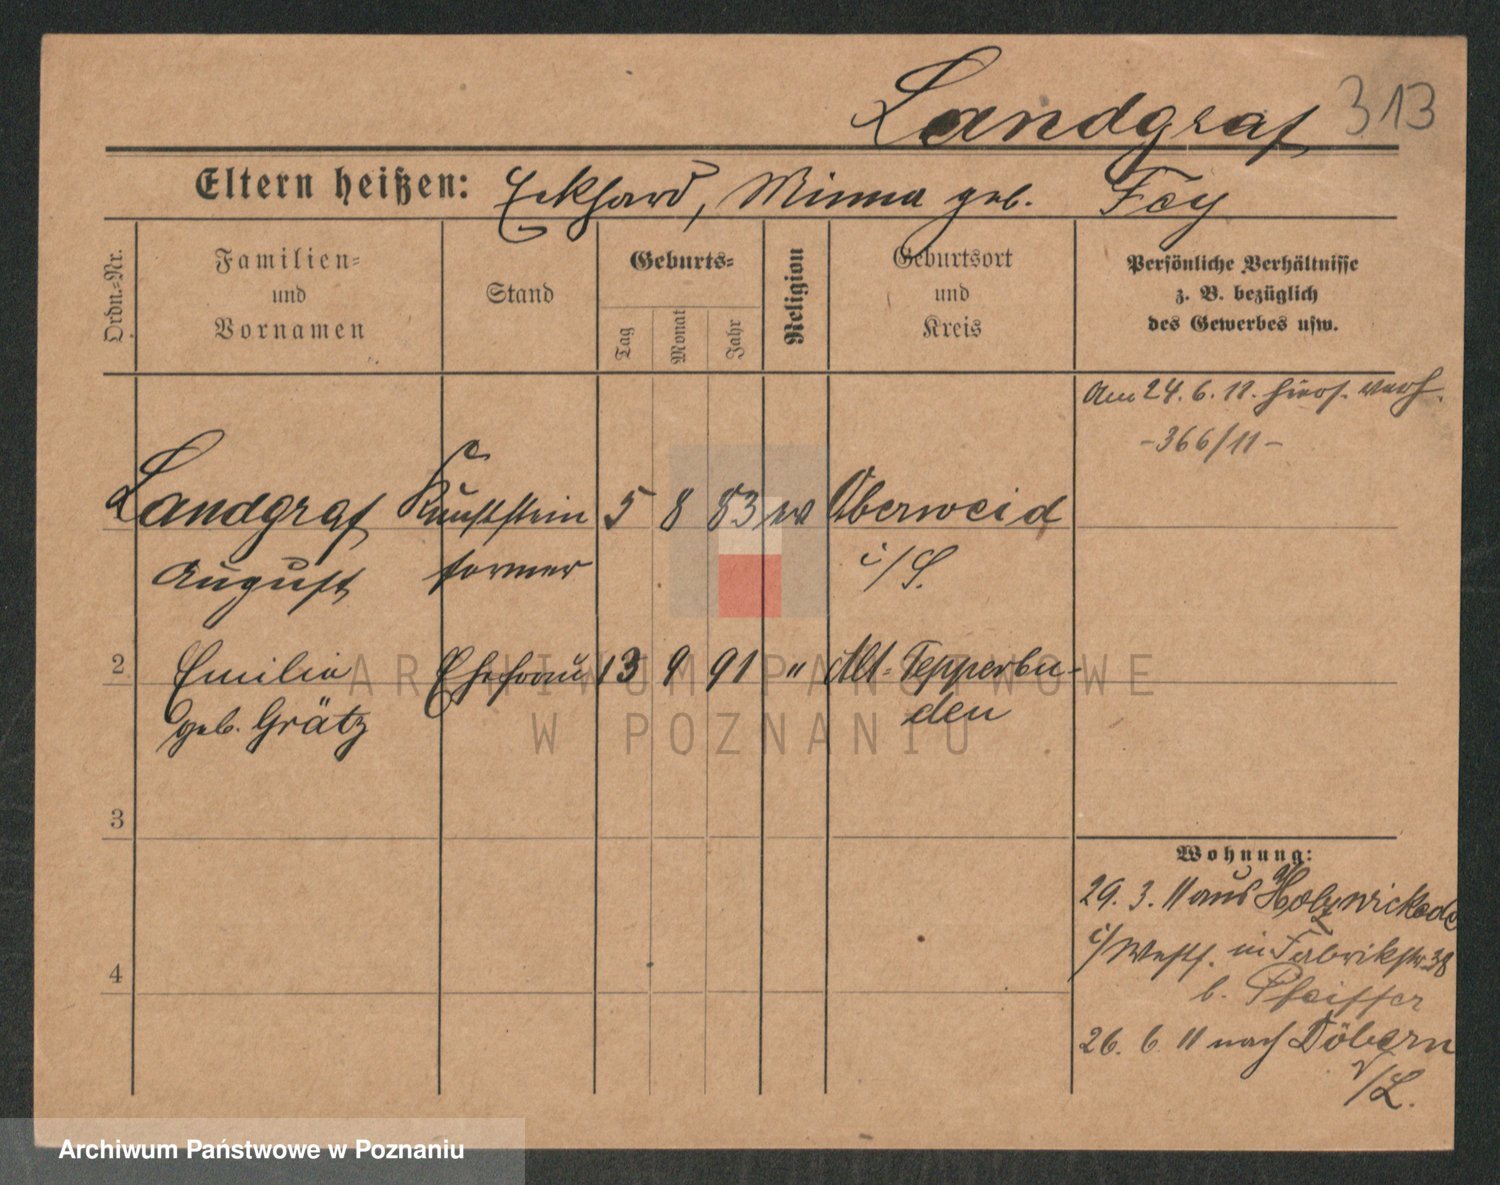 Landgraf 313
Eltern heißen: Eckhard, Minna geb. Fey
Ordn.-Nr.
Familien-
und
Vornamen
Stand
Geburts-
Tag
Monat
Jahr
Religion
Geburtsort
und
Kreis
Persönliche Verhältnisse
z. B. bezüglich
des Gewerbes usw.
Am 24. 6. 11. hiers. verh.
-366/11-
Landgraf Kunststein 5 8 83 ev Oberweid
August former i/S.
2 Emilie Ehefrau 13 9 91 " Alt-Tepperbu-
geb. Grätz den
3
4
Wohnung:
29. 3. 11 aus Holzwickede
i/Westf. in Fabrikstr. 38
b. Pfeiffer
26. 6 11 nach Döbern
/L.
ARCHIWUM PAŃSTWOWE
W POZNANIU
Archiwum Państwowe w Poznaniu